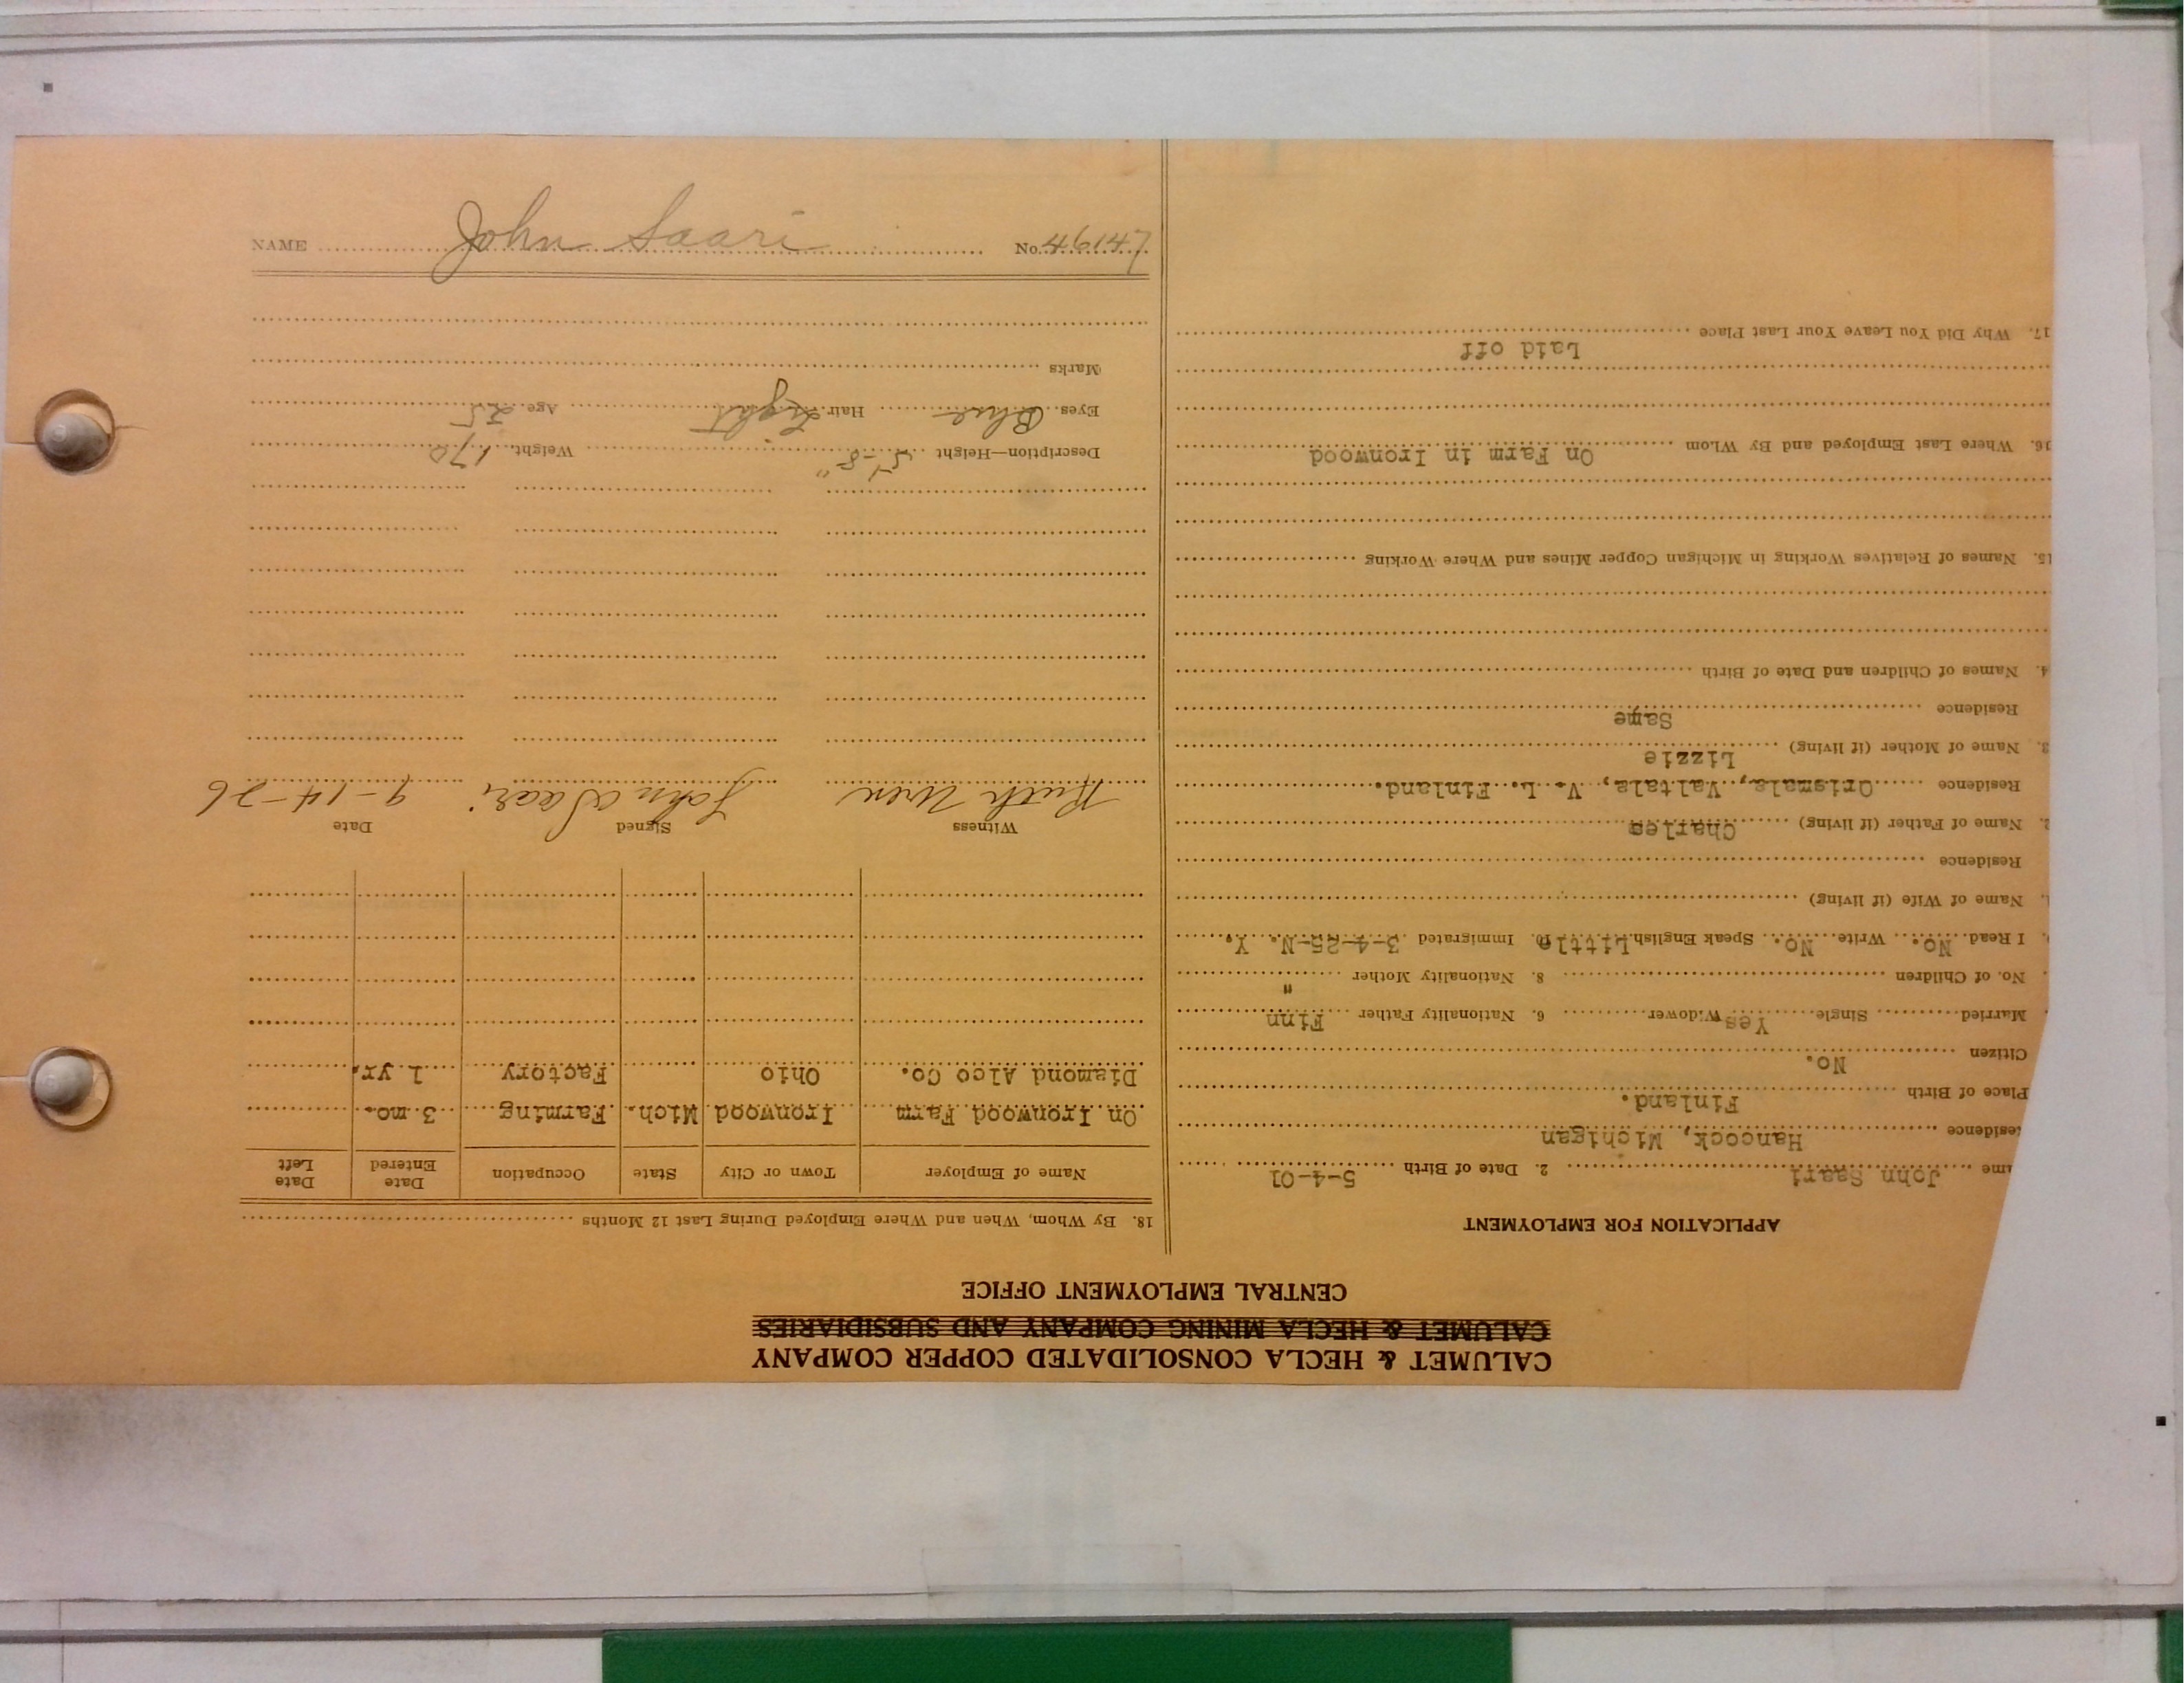 CALUMET & HECLA CONSOLIDATED COPPER COMPANY
CALUMET & HECLA MINING COMPANY AND SUBSIDIARIES
CENTRAL EMPLOYMENT OFFICE
APPLICATION FOR EMPLOYMENT
ame John Saari 2. Date of Birth 5-4-01
Residence Hancock, Michigan
Place of Birth Finland.
Citizen No.
Married Single Yes Widower 6. Nationality Father Finn
No. of Children 8. Nationality Mother "
I Read No. Write No. Speak English Little 10. Immigrated 3-4-25-N. Y.
Name of Wife (if living)
Residence
2. Name of Father (if living) Charles
Residence Orismala, Valtala, V. L. Finland.
3. Name of Mother (if living) Lizzie
Residence Same
4. Names of Children and Date of Birth
15. Names of Relatives Working in Michigan Copper Mines and Where Working
16. Where Last Employed and By Whom On Farm in Ironwood
17. Why Did You Leave Your Last Place
Laid off
18. By Whom, When and Where Employed During Last 12 Months
Name of Employer Town or City State Occupation Date Entered Date Left
On Ironwood Farm Ironwood Mich. Farming 3 mo.
Diamond Alco Co. Ohio Factory 1 yr.
Witness Signed Date
Ruth Uren John Saari 9-14-26
Description—Height 5'-8" Weight 170
Eyes Blue Hair Light Age 25
Marks
NAME John Saari No. 46147